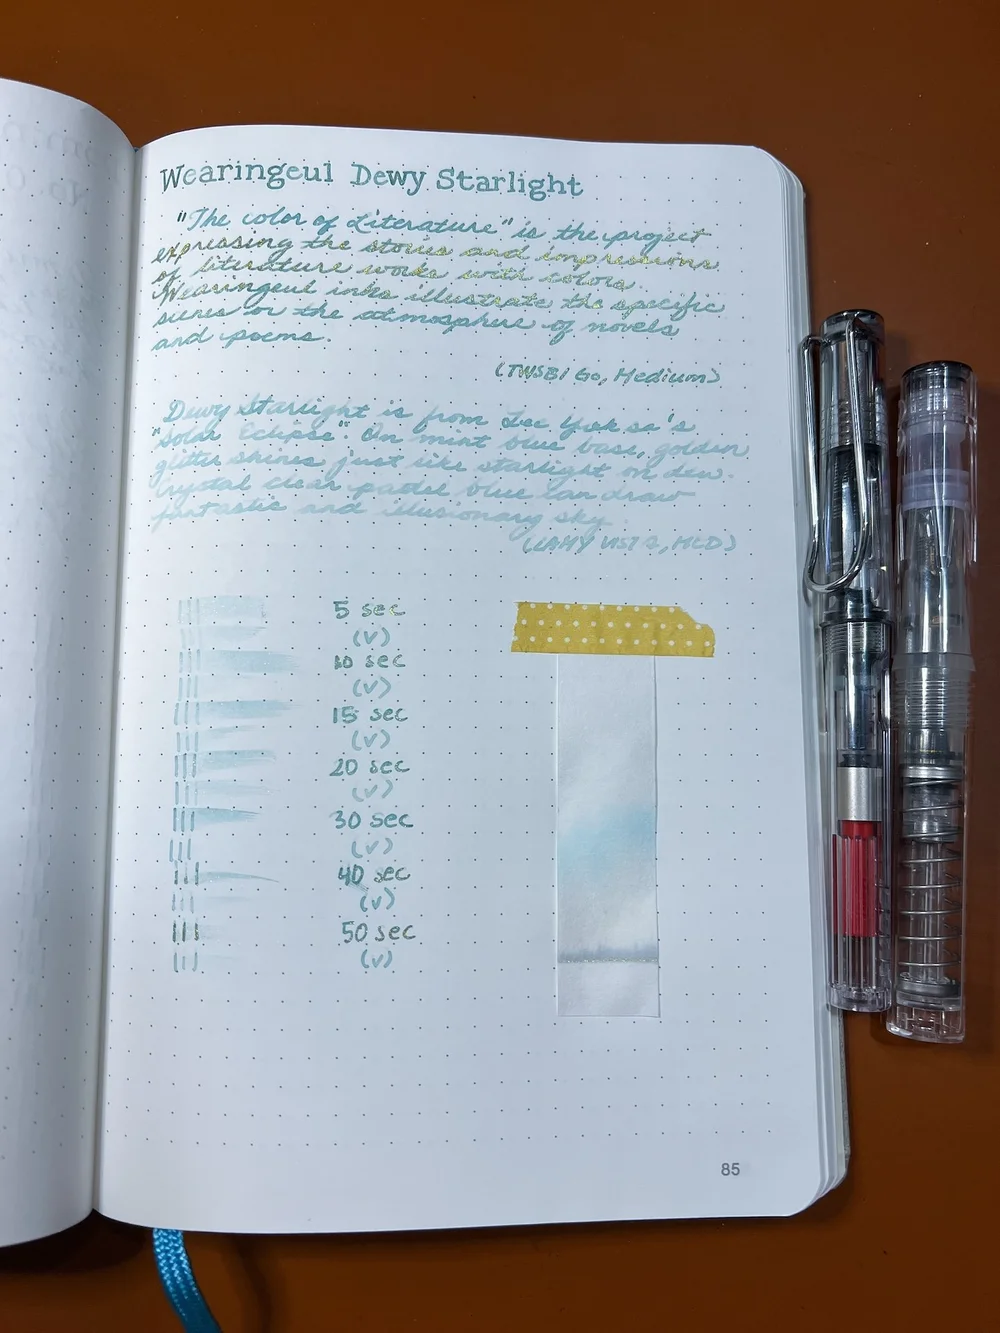 Wearingeul Dewy Starlight
"The color of Literature" is the project
expressing the stories and impressions
of literature works with colors.
Wearingeul inks illustrate the specific
scenes or the atmosphere of novels
and poems.
(TWSBI Go, Medium)
Dewy Starlight is from Lee Yuk sa's
"Solar Eclipse". On mint blue base, golden
glitter shines just like starlight on dew.
Crystal clear pastel blue can draw
fantastic and illusionary sky.
(LAMY VISTA, MED)
5 sec
(v)
10 sec
(v)
15 sec
(v)
20 sec
(v)
30 sec
(v)
40 sec
(v)
50 sec
(v)
85